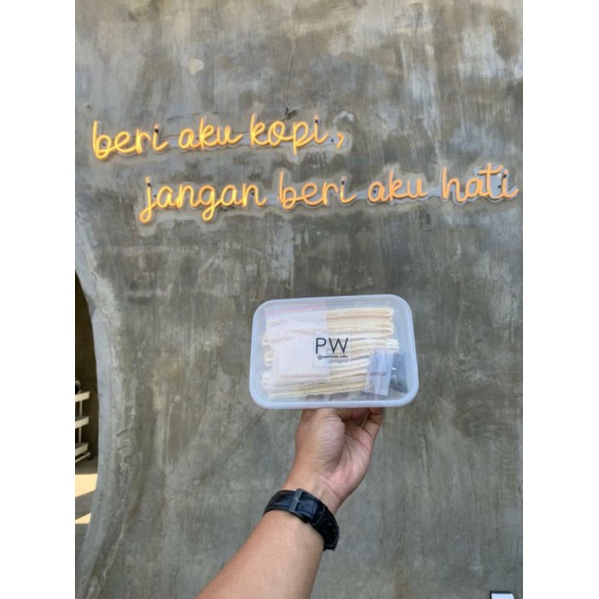 beri aku kopi,
jangan beri aku hati
PW